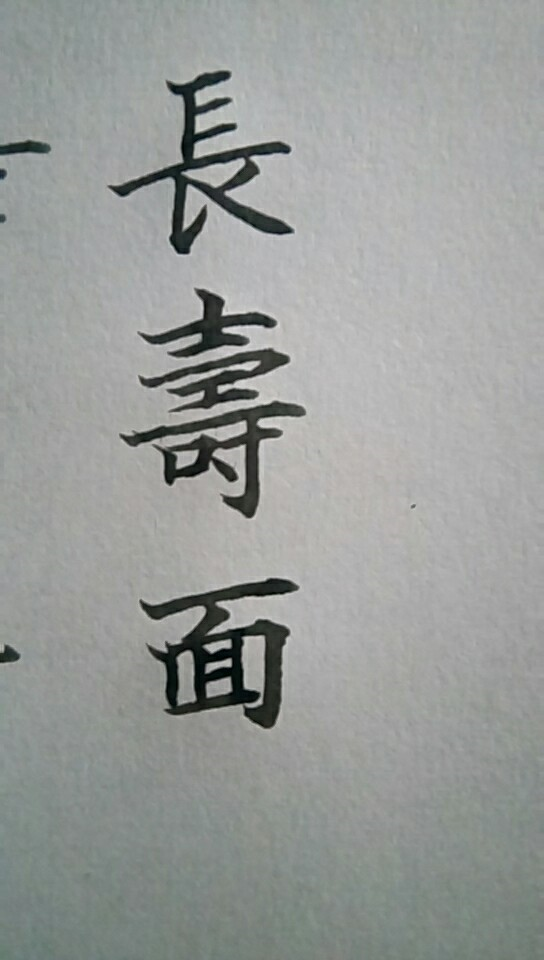 長壽面